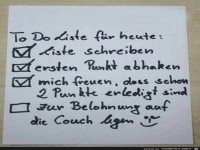 To Do Liste für heute:
Liste schreiben
ersten Punkt abhaken
mich freuen, dass schon
2 Punkte erledigt sind
zur Belohnung auf
die Couch legen